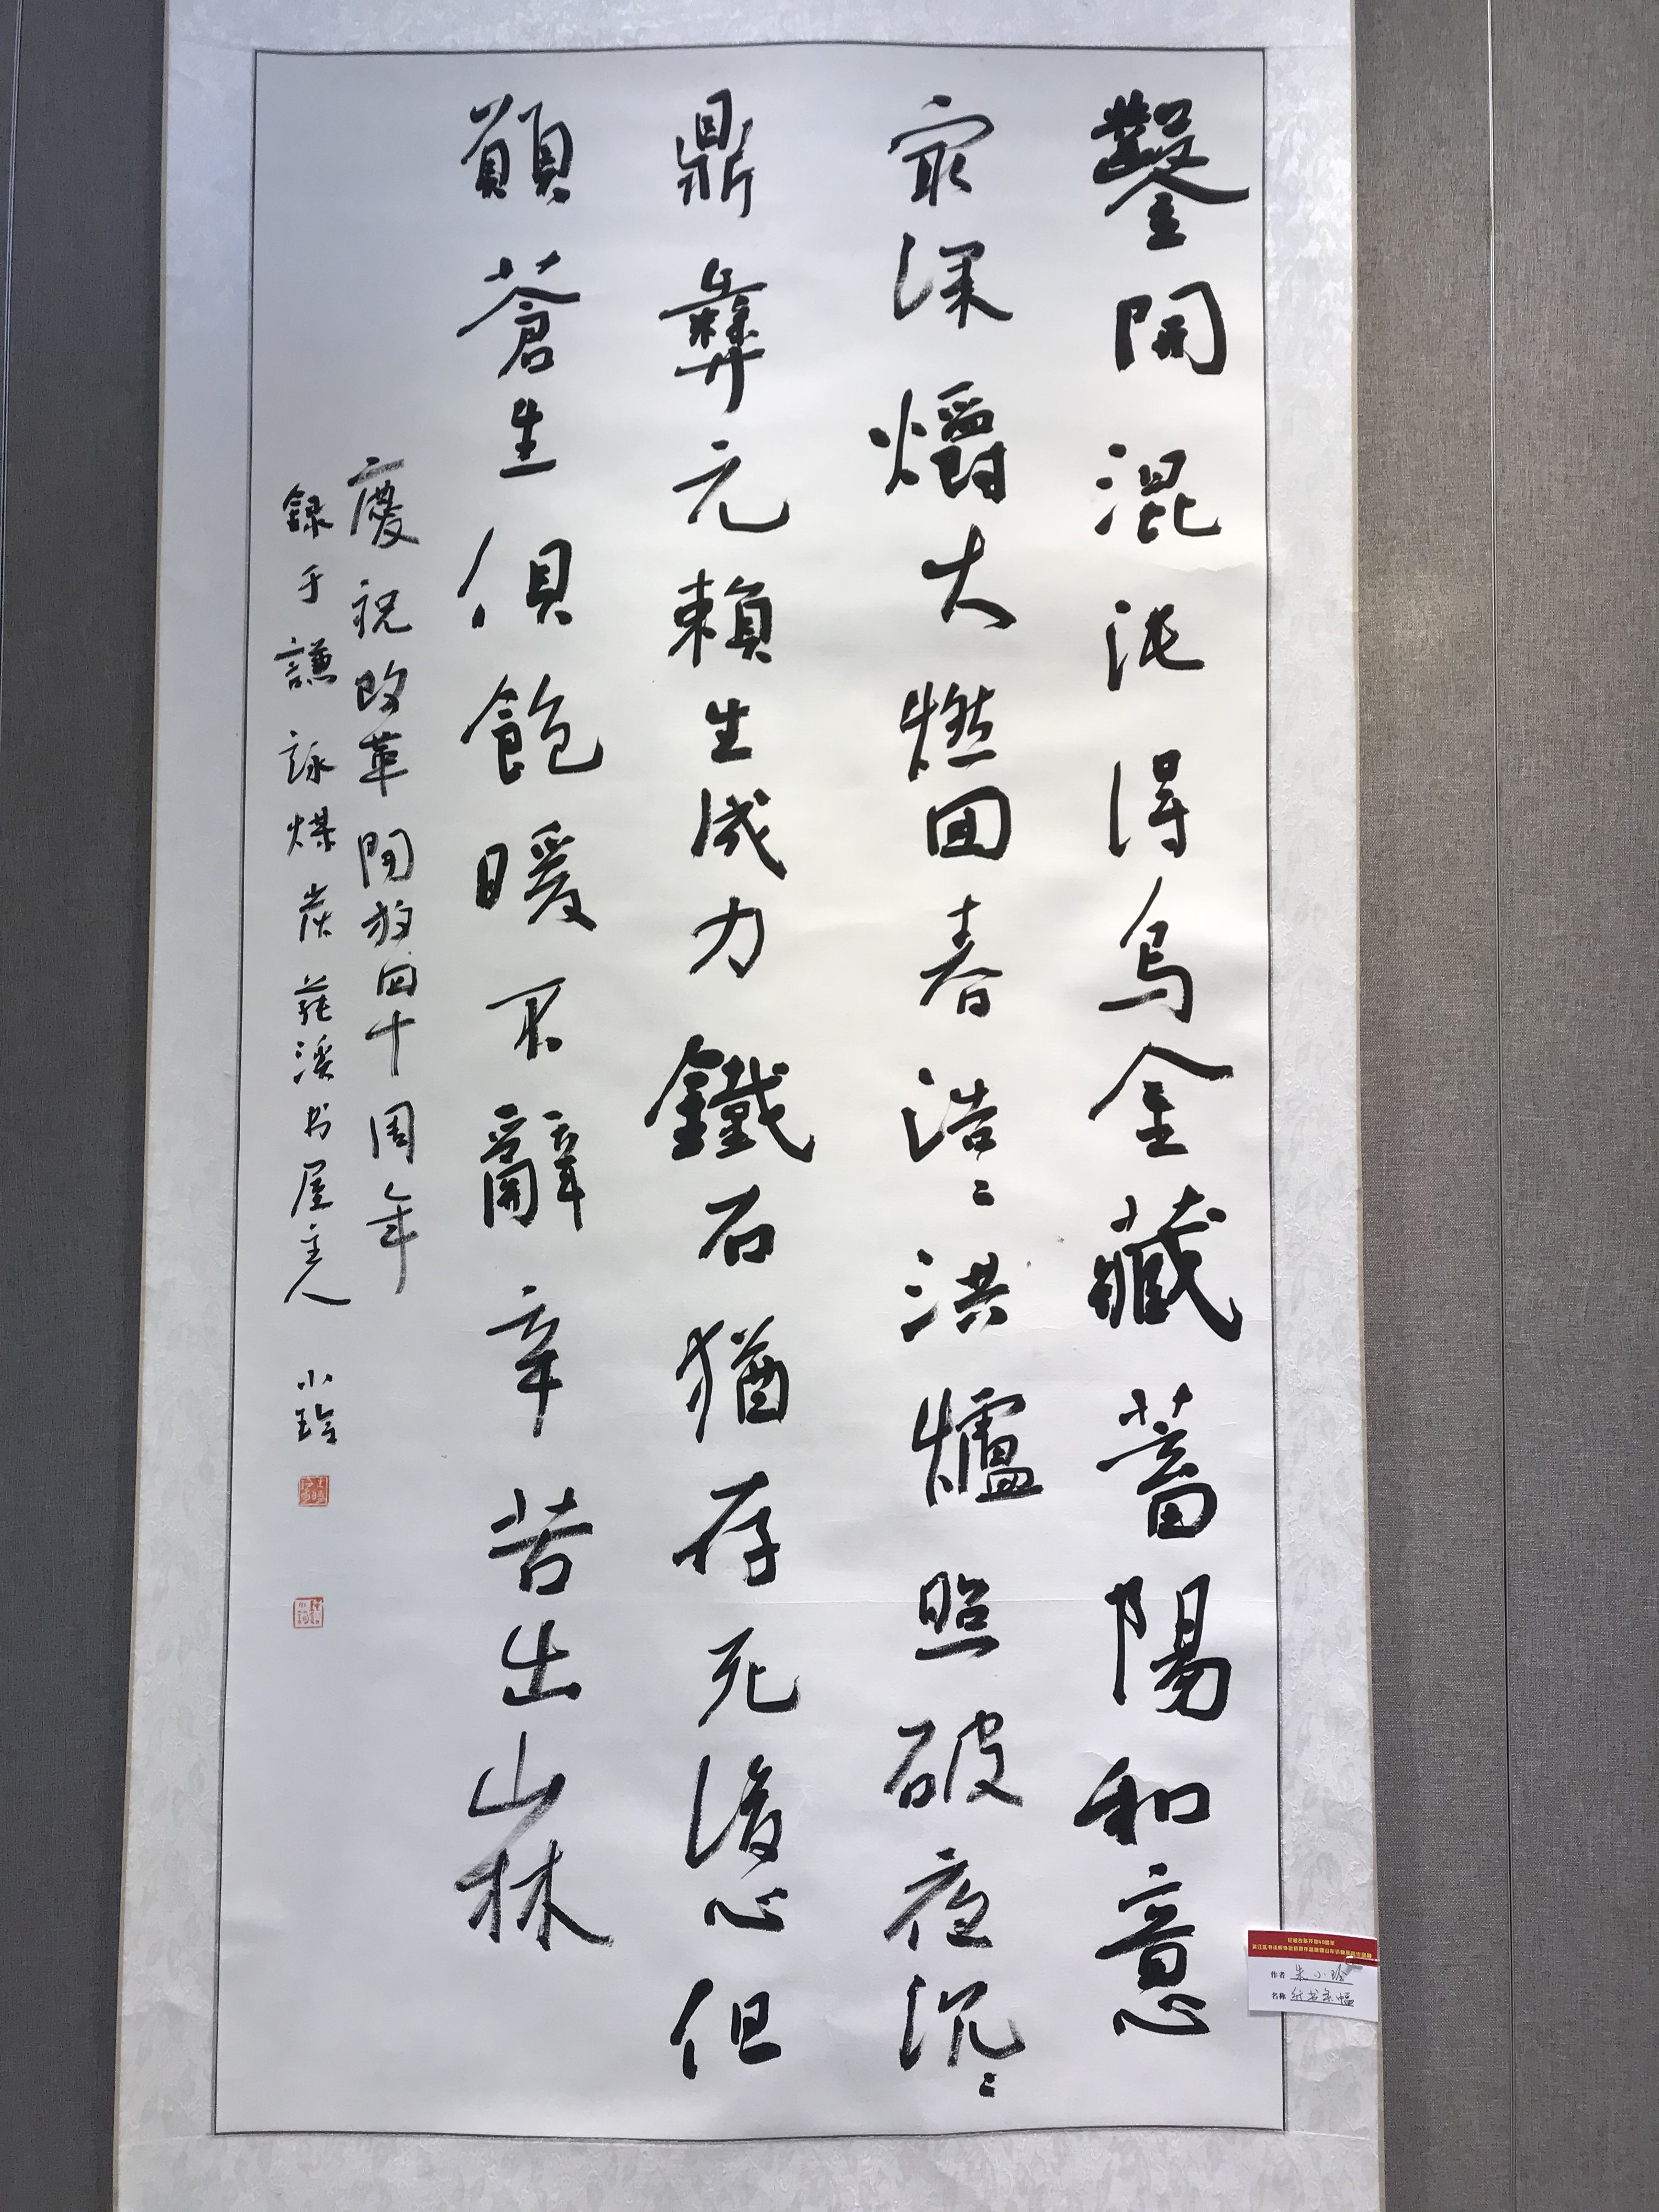 鑿開混沌得烏金藏蓄陽和意
寂深爝火燃回春浩〻洪爐照破夜沉〻
鼎彝元賴生成力鐵石猶存死後心但
願蒼生俱飽暖不辭辛苦出山林
慶祝改革開放四十周年
録于謙詠煤炭蕝溪书屋主人 小玲
作者 朱小玲
名称 行书条幅